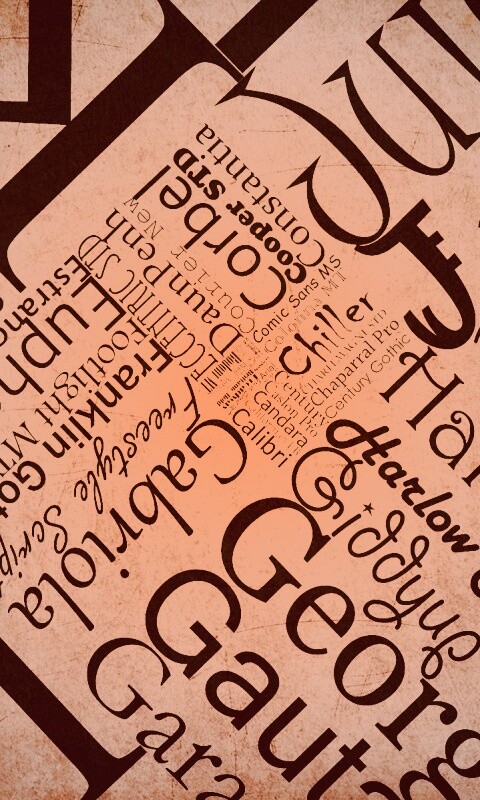 Constantia
Cooper STD
Corbel
Courier New
DaunPenh
ECCENTRIC STD
Estrang
Euph
Footlight MT
Franklin Got
Freestyle Scrip
Gabriola
Comic Sans MS
Colonna MT
Chiller
Chaparral Pro
Century Gothic
Century
Candara
Calibri
Har
Harlow
Giddyup
Georg
Gauta
Gara